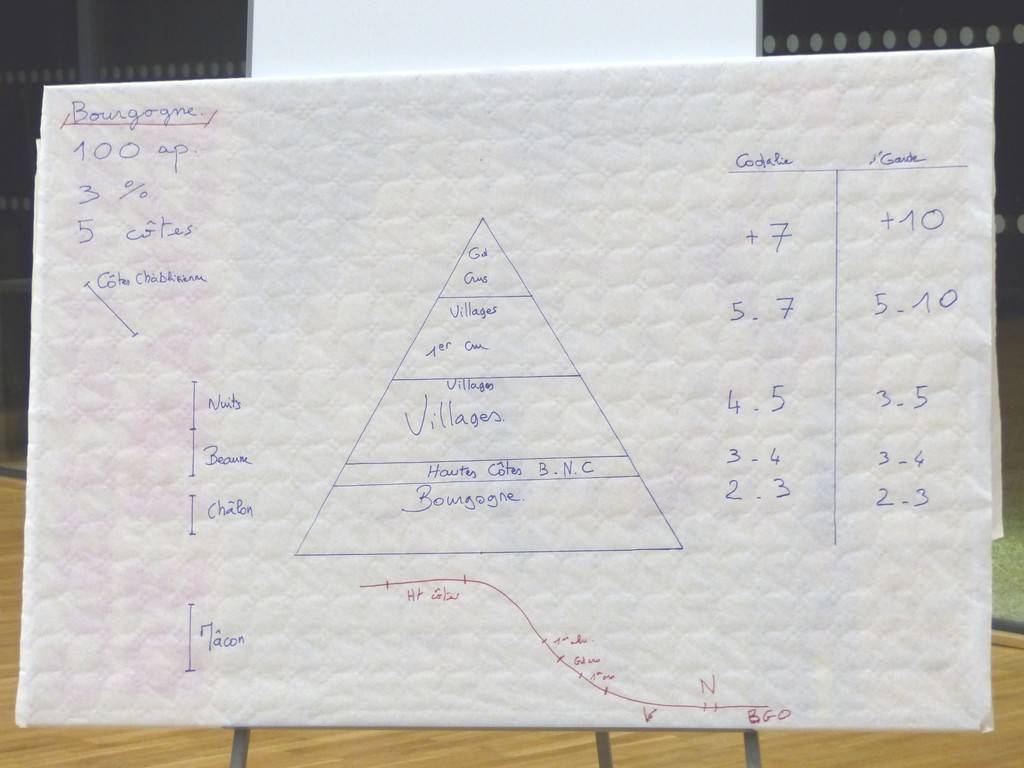 Bourgogne.
100 ap.
3 %
5 côtes
Côtes Chablisienne
Nuits
Beaune
Châlon
Mâcon
Gd
Crus
Villages
1er cru
Villages
Villages.
Hautes Côtes B.N.C
Bourgogne.
Codalie
+7
5-7
4-5
3-4
2-3
Garde
+10
5-10
3-5
3-4
2-3
Ht côtes
1er cru
Gd cru
1er cru
V
N
BGO